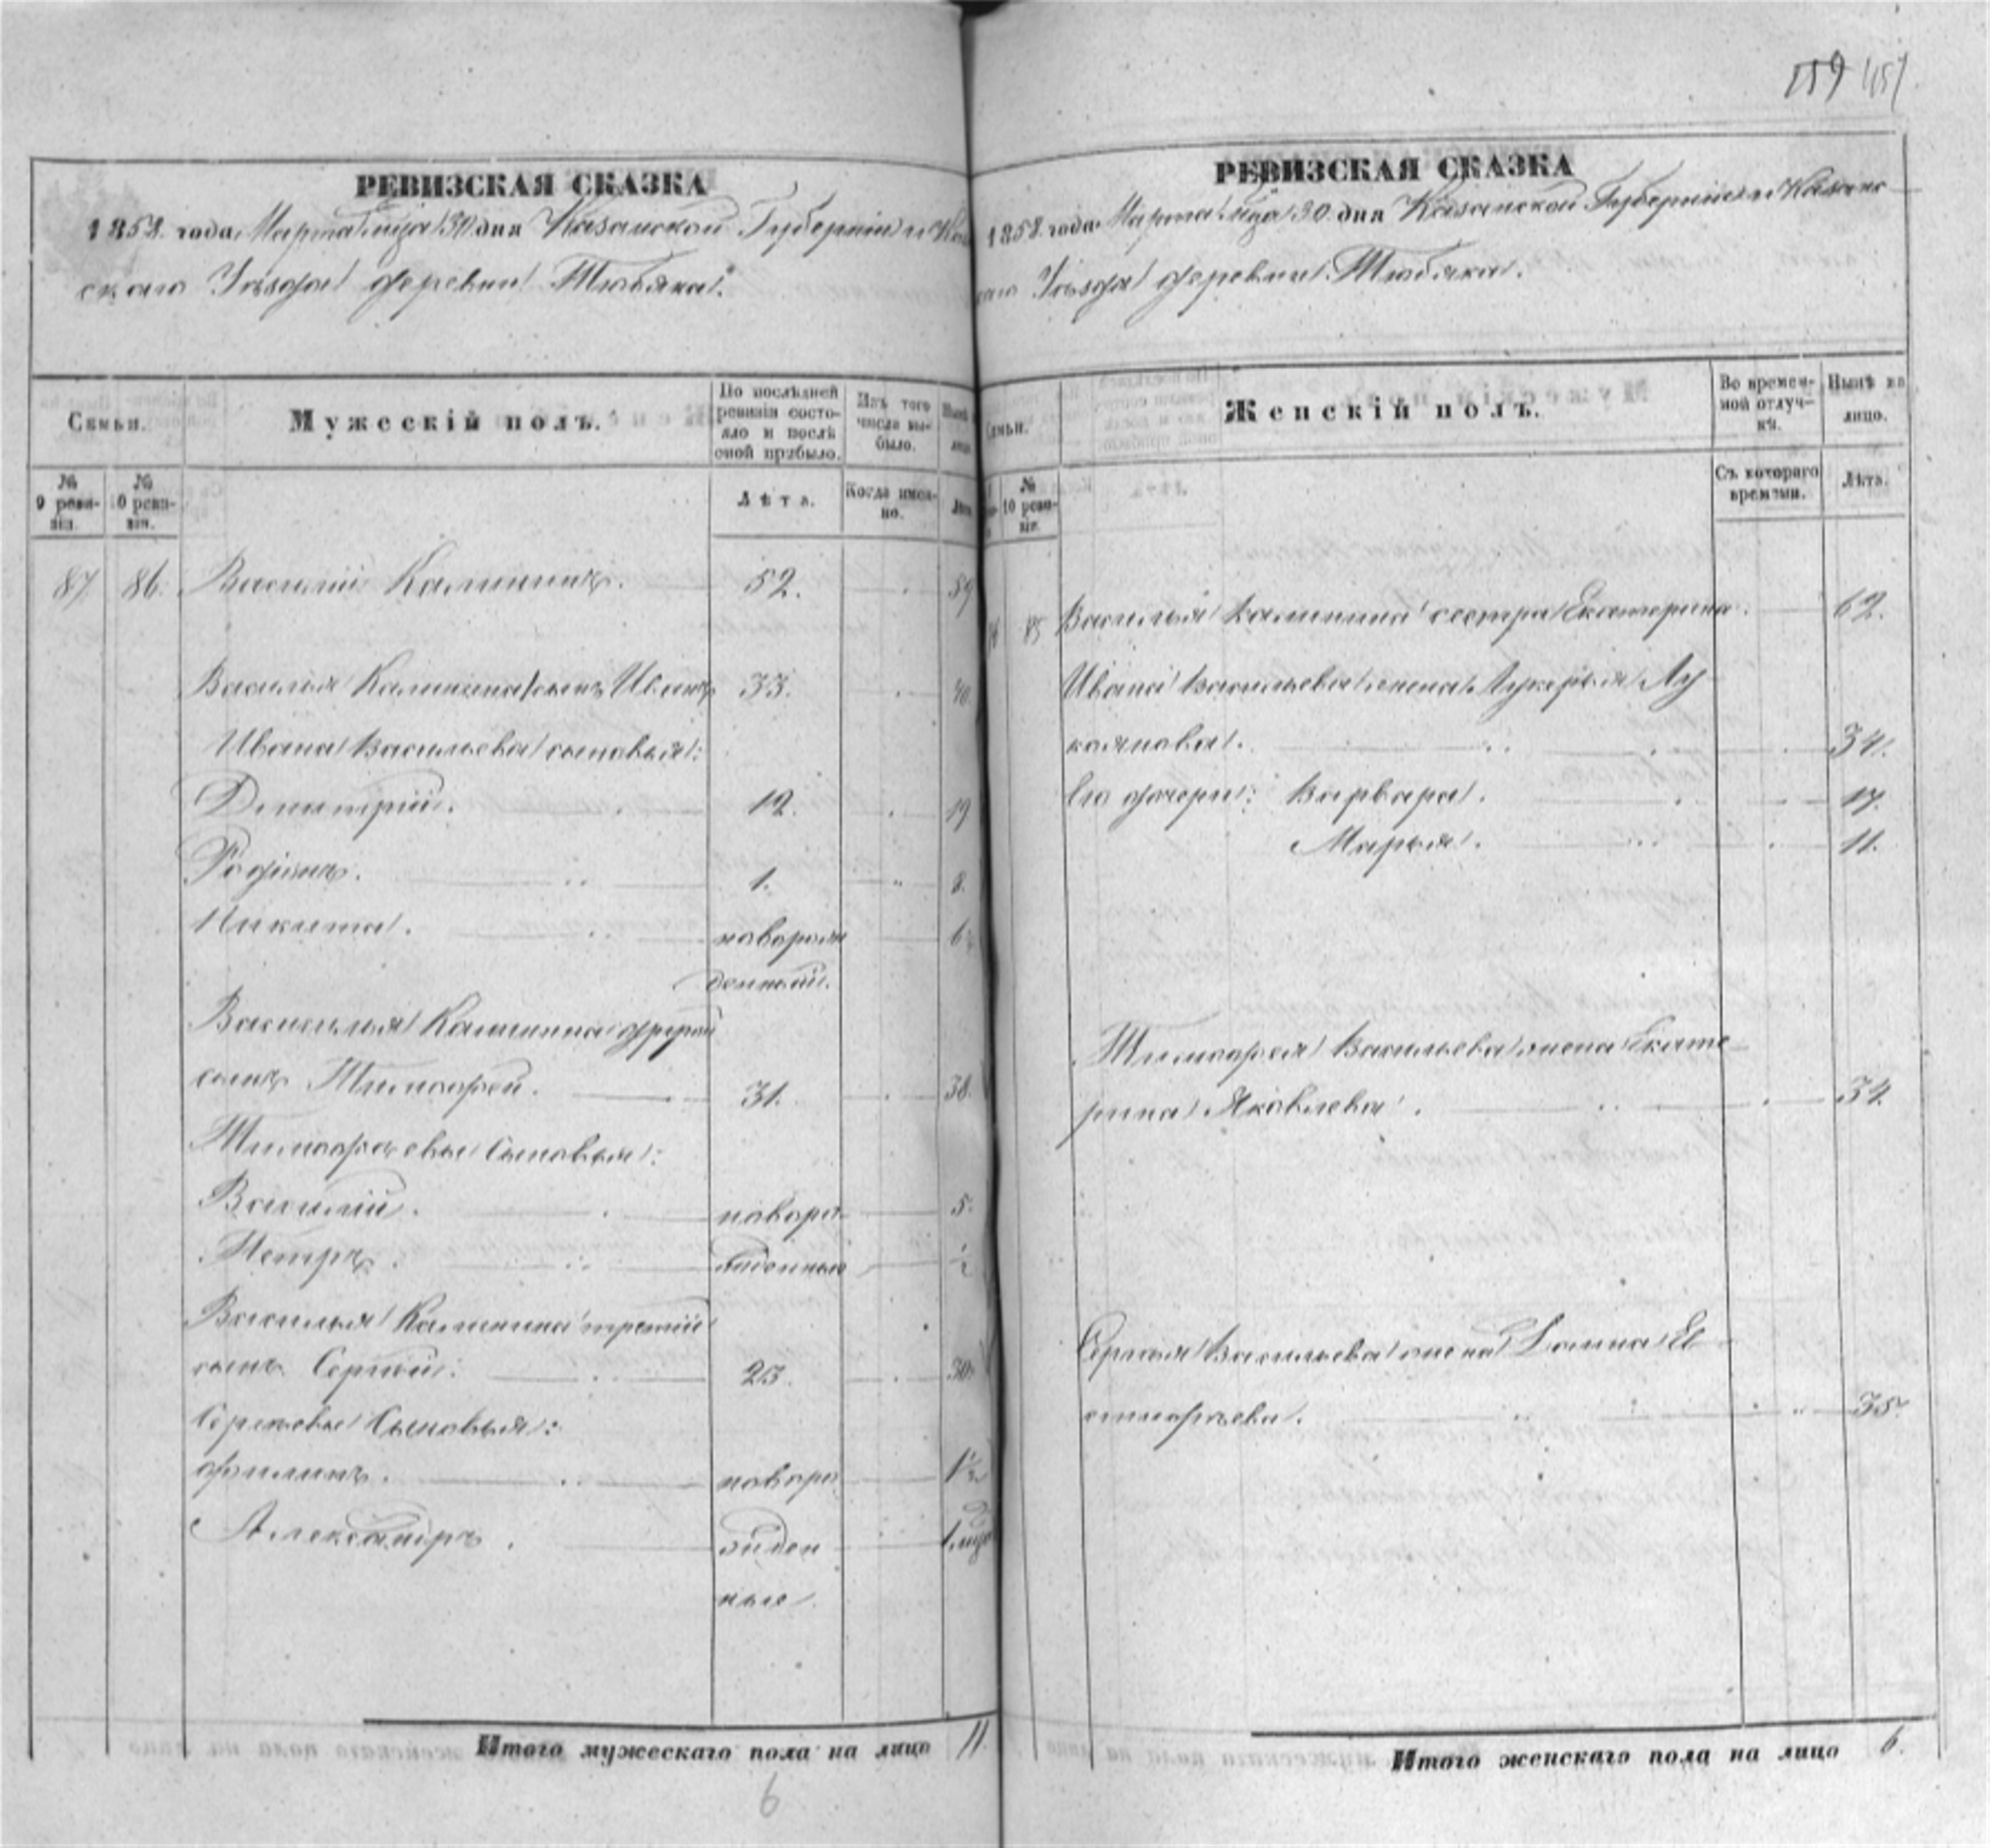 159 457
РЕВИЗСКАЯ СКАЗКА
1858 года, Марта м-ца 30 дня Казанской Губерніи и Каз
скаго Уѣзда деревни Тюбяка.
Семьи.
Мужескій полъ.
По послѣдней ревизіи состояло и послѣ оной прибыло.
Изъ того числа выбыло.
Нынѣ
лицо
№ 9 ревизіи.
№ 10 ревизіи.
Лѣта.
Когда именно.
Лѣта
87. 86. Василій Калининъ. 52. 59
Василья Калинина сынъ Иванъ 33. 40.
Ивана Васильева сыновья:
Димитрій. 12. 19
Родіонъ. 1. 8.
Никита. новорож 6½
денный.
Василья Калинина другой
сынъ Тимофей. 31. 38.
Тимофеевы Сыновья:
Василій. новоро 5.
Петръ. жденные ½
Василья Калинина третій
сынъ Сергѣй: 23. 30
Сергѣевы Сыновья:
Филипъ. новоро 1½
Александръ. жден 1 мца
ные
Итого мужескаго пола на лицо 11.
6
РЕВИЗСКАЯ СКАЗКА
1858 года, Марта м-ца 30 дня Казанской Губерніи и Казанс
каго Уѣзда деревни Тюбяка.
Семьи.
Женскій полъ.
Во временной отлучкѣ.
Нынѣ на лицо.
№ 10 ревизіи.
Съ котораго времени.
Лѣта.
85 Василья Калинина сестра Екатерина. 62.
Ивана Васильева жена Лукерья Лу
коянова. 34.
Его дочери: Варвара. 17.
Марья. 11.
Тимофея Васильева жена Екате
рина Яковлева. 34.
Сергѣя Васильева жена Домна Ев
стифѣева. 35.
Итого женскаго пола на лицо 6.